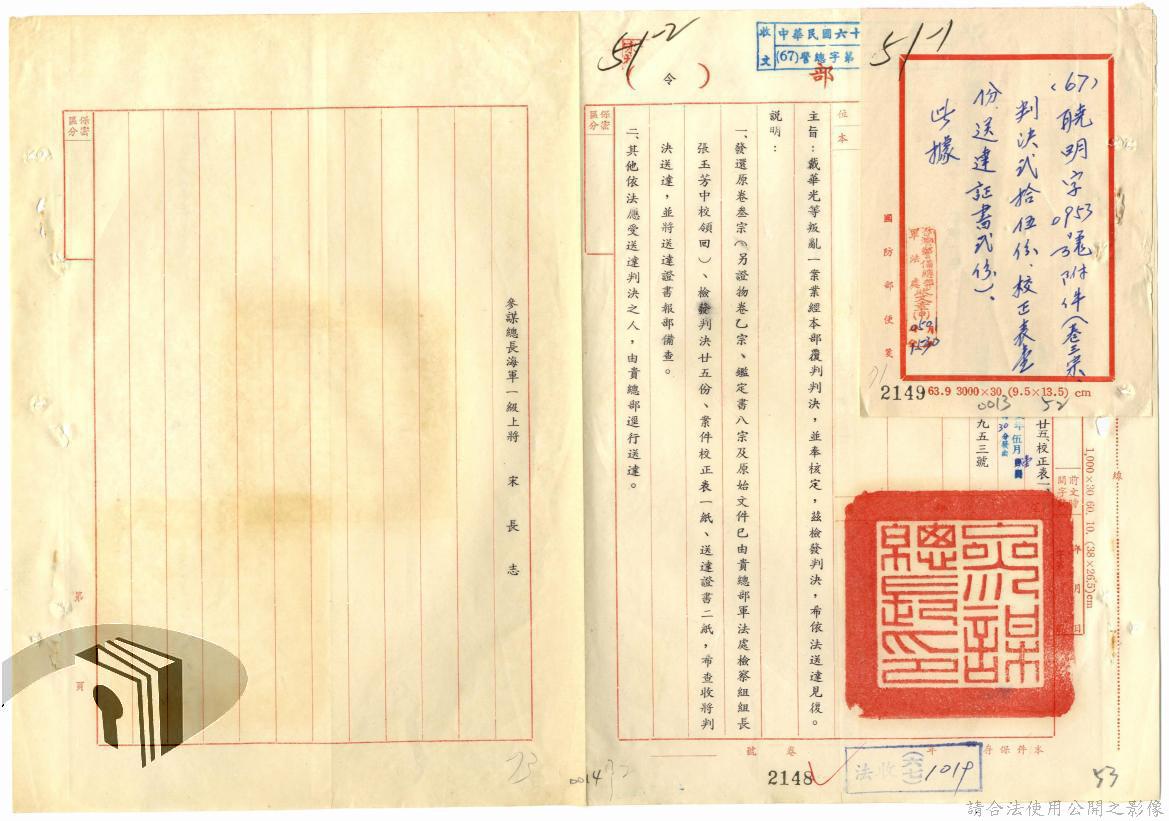 51-2
51-1
(67)曉明字0953號附件(卷三宗、
判決弍拾伍份、校正表壹
份、送達証書弍份)、
此據
國防部便箋
台灣警備總部
軍法處收文章
0501
1530
2149
63.9 3000×30 (9.5×13.5) cm
0013
52
收文
中華民國六十
(67)警總字第
部
(令)
位
本
保密
區分
廿五、校正表一
九五三號
年伍月
主旨:戴華光等叛亂一案業經本部覆判判決,並奉核定,茲檢發判決,希依法送達見復。
說明:
一、發還原卷叁宗(另證物卷乙宗、鑑定書八宗及原始文件已由貴總部軍法處檢察組組長
張玉芳中校領回)、檢發判決廿五份、案件校正表一紙、送達證書二紙,希查收將判
決送達,並將送達證書報部備查。
二、其他依法應受送達判決之人,由貴總部逕行送達。
參謀總長印
1,000×30 60. 10. (38×26.5)cm
線
本件保存
年
卷
號
2148
法收(六七)1019
53
0014
保密
區分
參謀總長海軍一級上將 宋長志
第
頁
請合法使用公開之影像